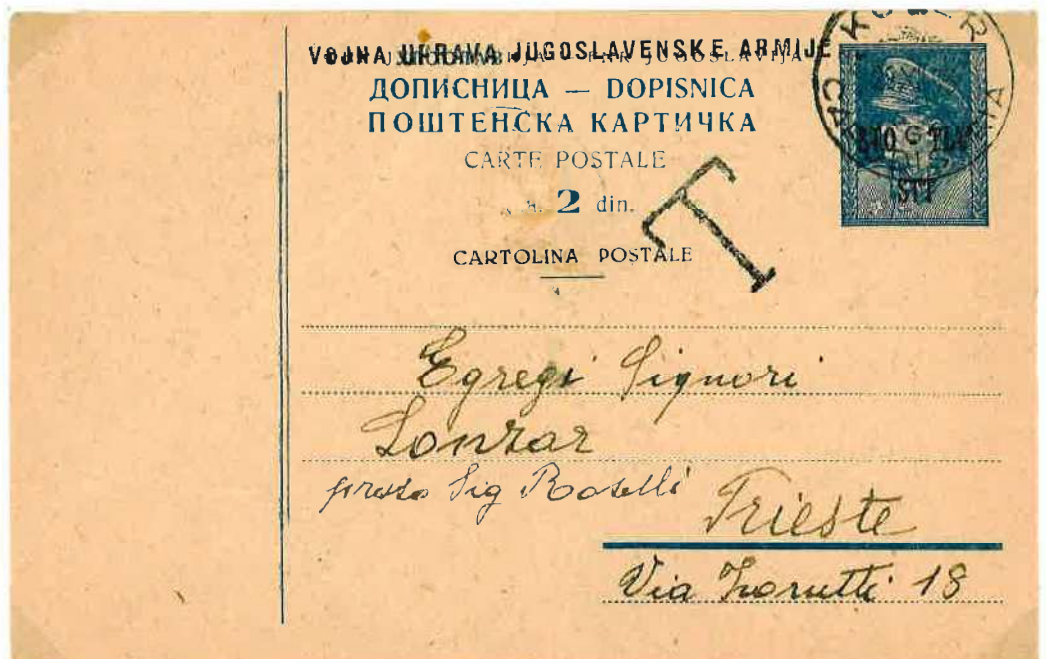 VOJNA UPRAVA JUGOSLAVENSKE ARMIJE
ДОПИСНИЦА — DOPISNICA
ПОШТЕНСКА КАРТИЧКА
CARTE POSTALE
2 din.
CARTOLINA POSTALE
STT
T
Egregi Signori
Lonzar
presso Sig Roselli
Trieste
Via Zorutti 18